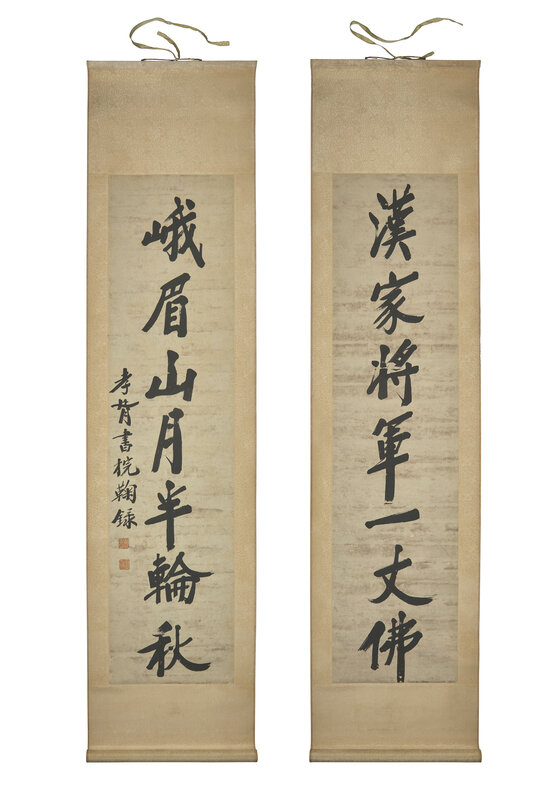 漢家將軍一丈佛
峨眉山月半輪秋
孝胥書梡鞠録